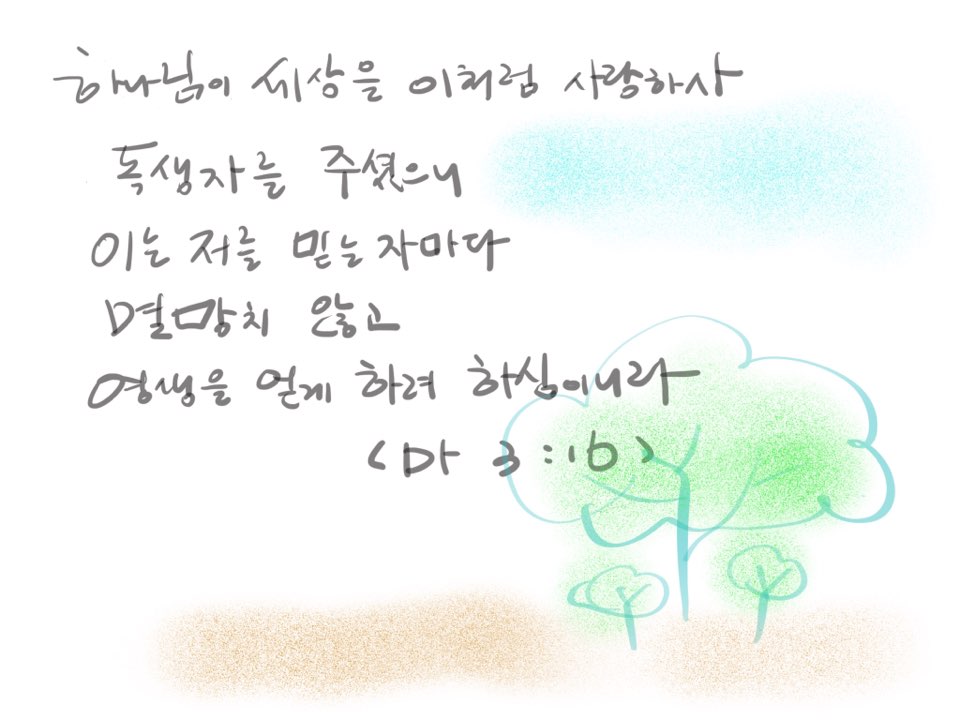 하나님이 세상을 이처럼 사랑하사
독생자를 주셨으니
이는 저를 믿는 자마다
멸망치 않고
영생을 얻게 하려 하심이니라
(마 3:16)